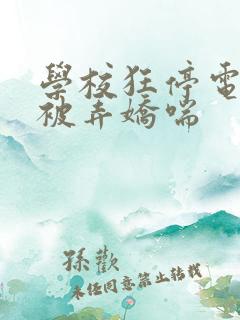 學校狂停電
被弄嬌喘
孫歡
未經同意禁止轉載